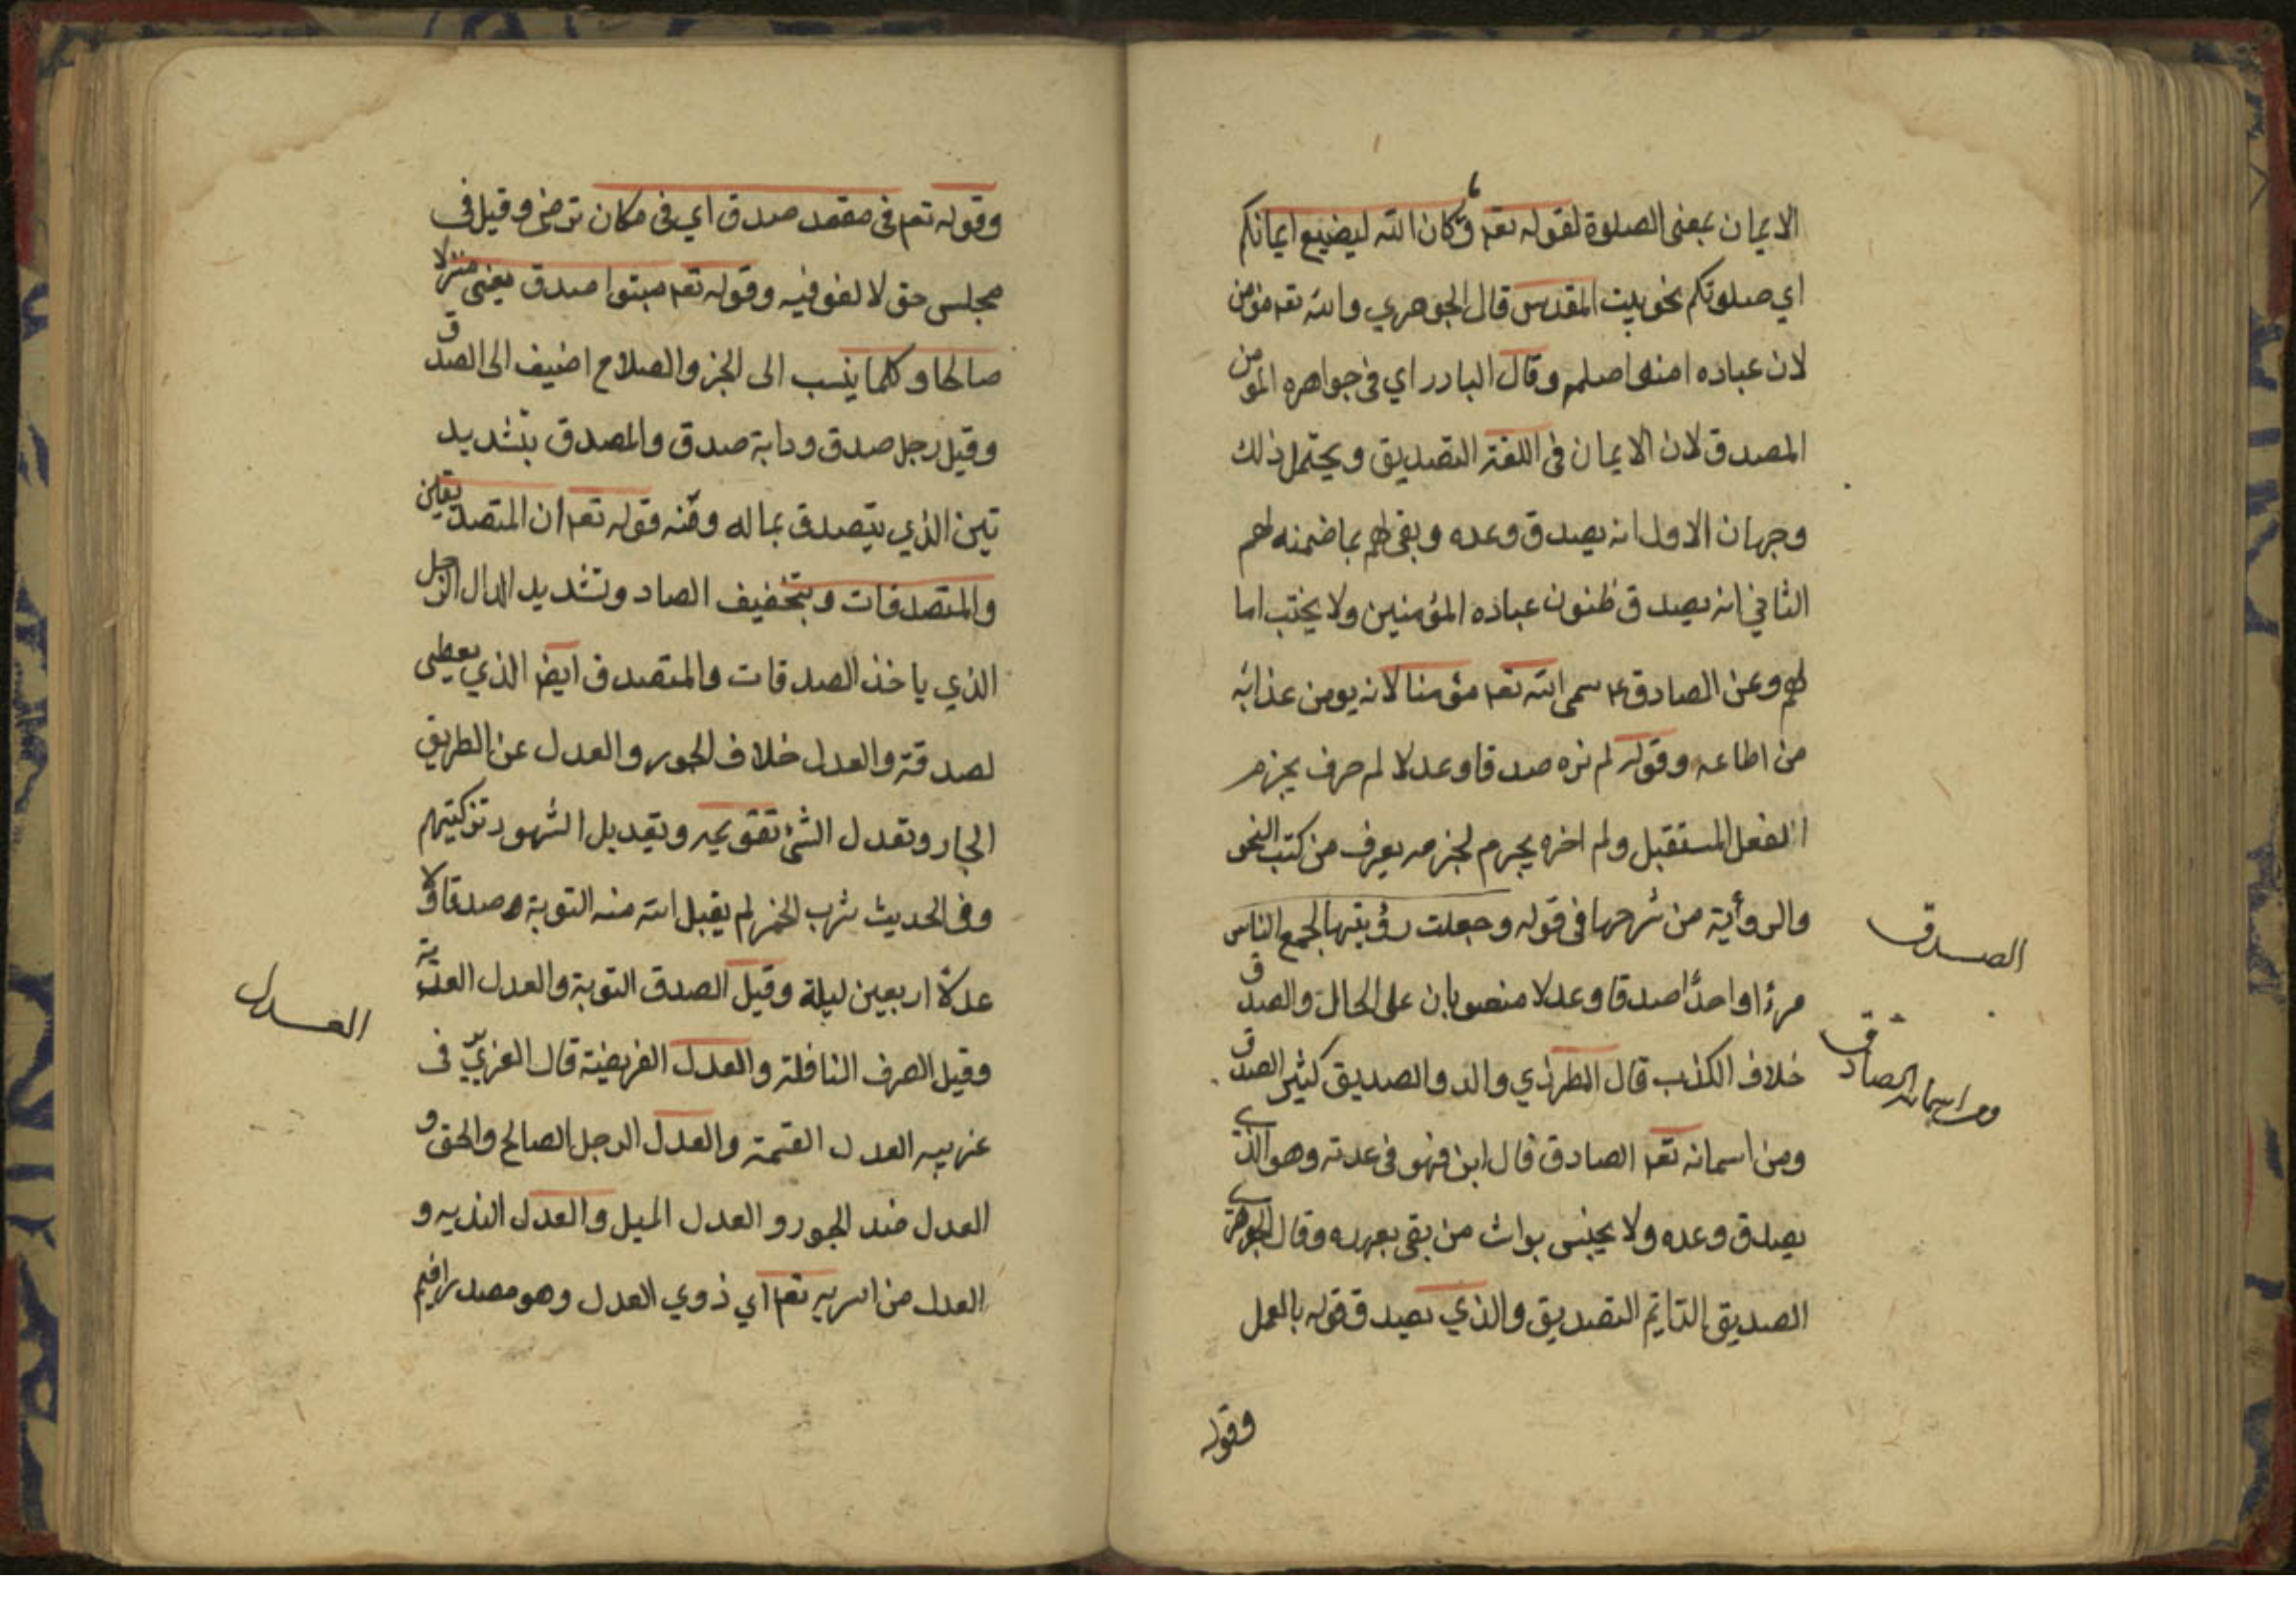 الايمان بمعنى الصلوة لقوله تعم وما كان الله ليضيع ايمانكم
اي صلوتكم نحو بيت المقدس قال الجوهري والله تعم مؤمن
لان عباده امنهم اصلهم وقال البادراي في جواهره المؤمن
المصدق لان الايمان في اللغة التصديق ويحتمل ذلك
وجهان الاول انه يصدق وعده ويفي لهم بما ضمنه لهم
الثاني انه يصدق ظنون عباده المؤمنين ولا يخيب اما
لهم وعن الصادق ع سمى الله تعم مؤمنا لانه يومن عذابه
من اطاعه وقوله لم نره صدقا وعدلا لم حرف يجزم
الفعل المستقبل ولم اخره يجزم لجزمه يعرف من كتب النحو
والروأية من شرحها في قوله وجعلت رؤيتها لجمع الناس
مرءا واحدًا صدقا وعدلا منصوبان على الحال والصدق
خلاف الكذب قال المطرزي والد والصديق كثير الصدق
ومن اسمائه تعم الصادق قال ابن فهو في عدته وهو الذي
يصدق وعده ولا يخس بواث من يفي بعهده وقال الجوهري
الصديق الدايم التصديق والذي يصدق قوله بالعمل
وقوله
الصدق
ومن اسمائه الصادق
وقوله تعم في مقعد صدق اي في مكان مرضي وقيل في
مجلس حق لا لغو فيه وقوله تعم مبوا صدق يعني منزلا
صالحا وكلما ينسب الى الخير والصلاح اضيف الى الصدق
وقيل رجل صدق ودابة صدق والمصدق بتشديد
تين الذي يتصدق بماله ومنه قوله تعم ان المتصدقين
والمتصدقات وبتخفيف الصاد وتشديد الدال الرجل
الذي ياخذ الصدقات والمتصدق ايض الذي يعطى
لصدقة والعدل خلاف الجور والعدل عن الطريق
الجار وتعدل الشئ تقويمه وتعديل الشهود تزكيتهم
وفي الحديث شرب الخمر لم يقبل الله منه التوبة صدقا ولا
عدلاً اربعين ليلة وقيل الصدق التوبة والعدل الفدية
وقيل الصرف النافلة والعدل الفريضة قال العزيزي في
غريبه العدل القيمة والعدل الرجل الصالح والحق و
العدل ضد الجور والعدل الميل والعدل الفديه و
العدل من اسمائه تعم اي ذوي العدل وهو مصدر اقيم
العدل